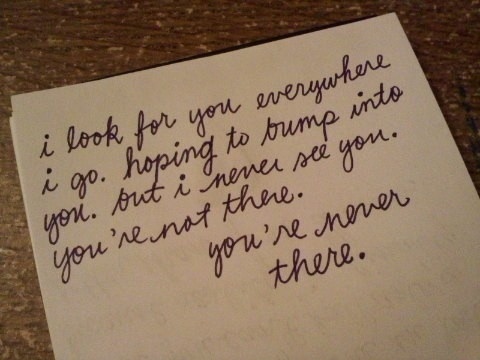 i look for you everywhere
i go. hoping to bump into
you. but i never see you.
you're not there.
you're never
there.